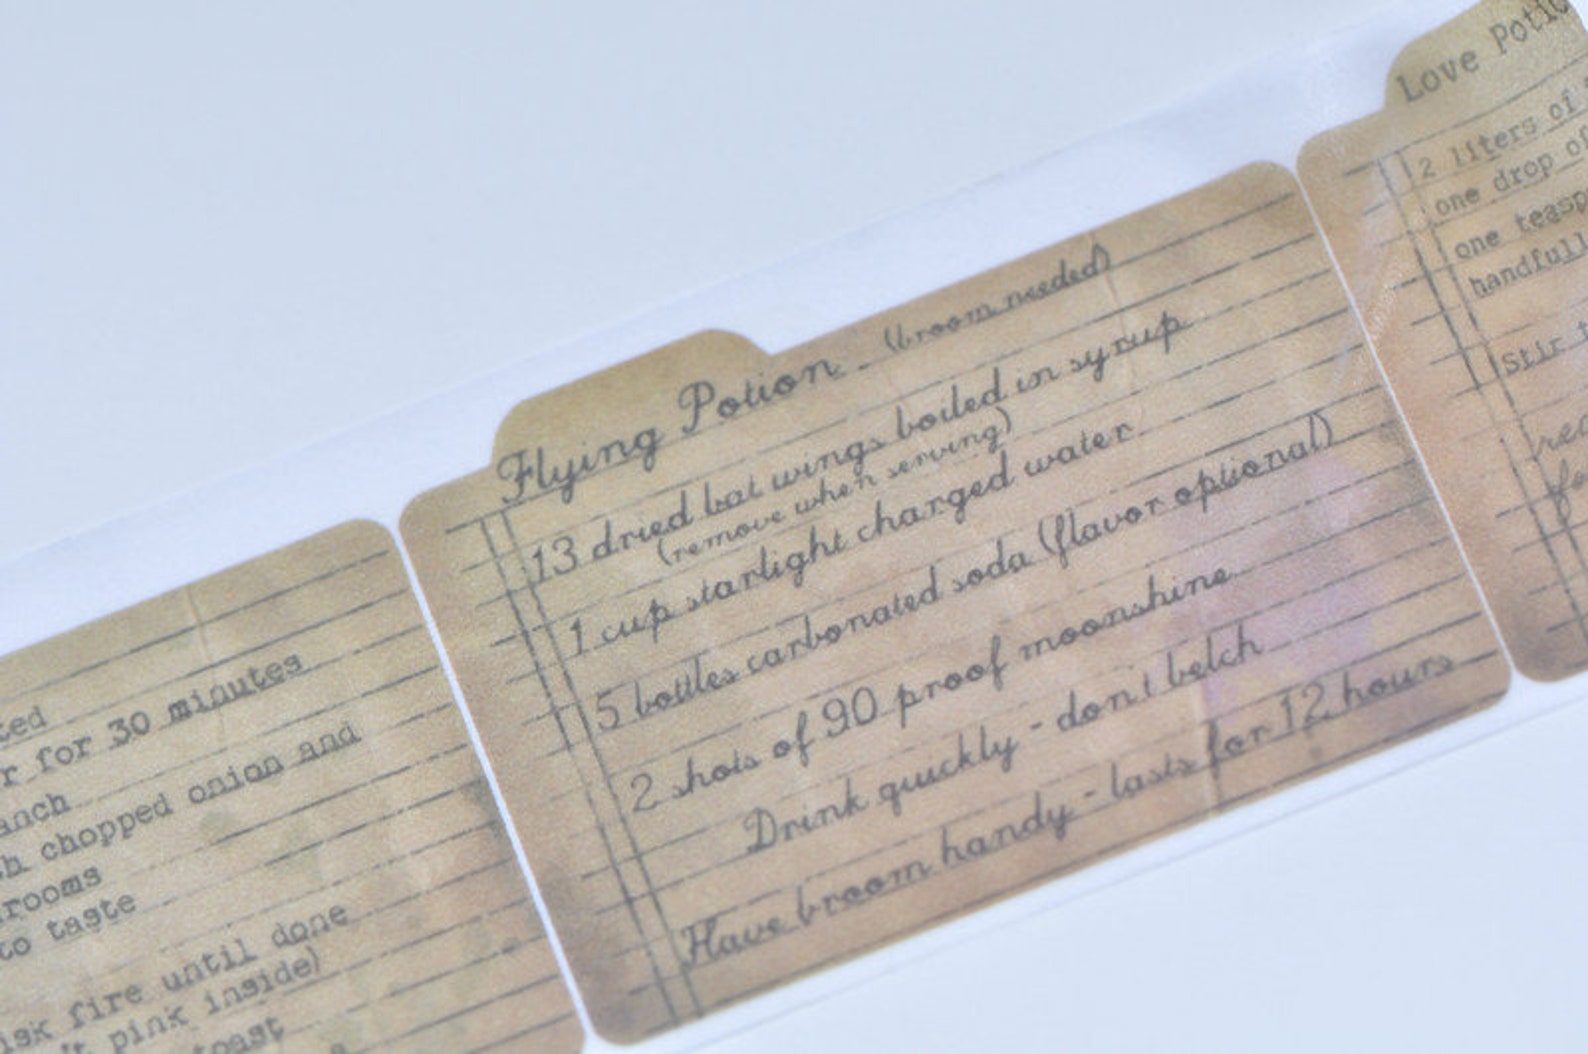 ted
r for 30 minutes
anch
h chopped onion and
rooms
to taste
isk fire until done
't pink inside)
toast
Flying Potion (broom needed)
13 dried bat wings boiled in syrup
(remove when serving)
1 cup starlight charged water
5 bottles carbonated soda (flavor optional)
2 shots of 90 proof moonshine
Drink quickly - don't belch
Have broom handy - lasts for 12 hours
Love Potio
2 liters of
one drop of
one teasp
handfull
Stir